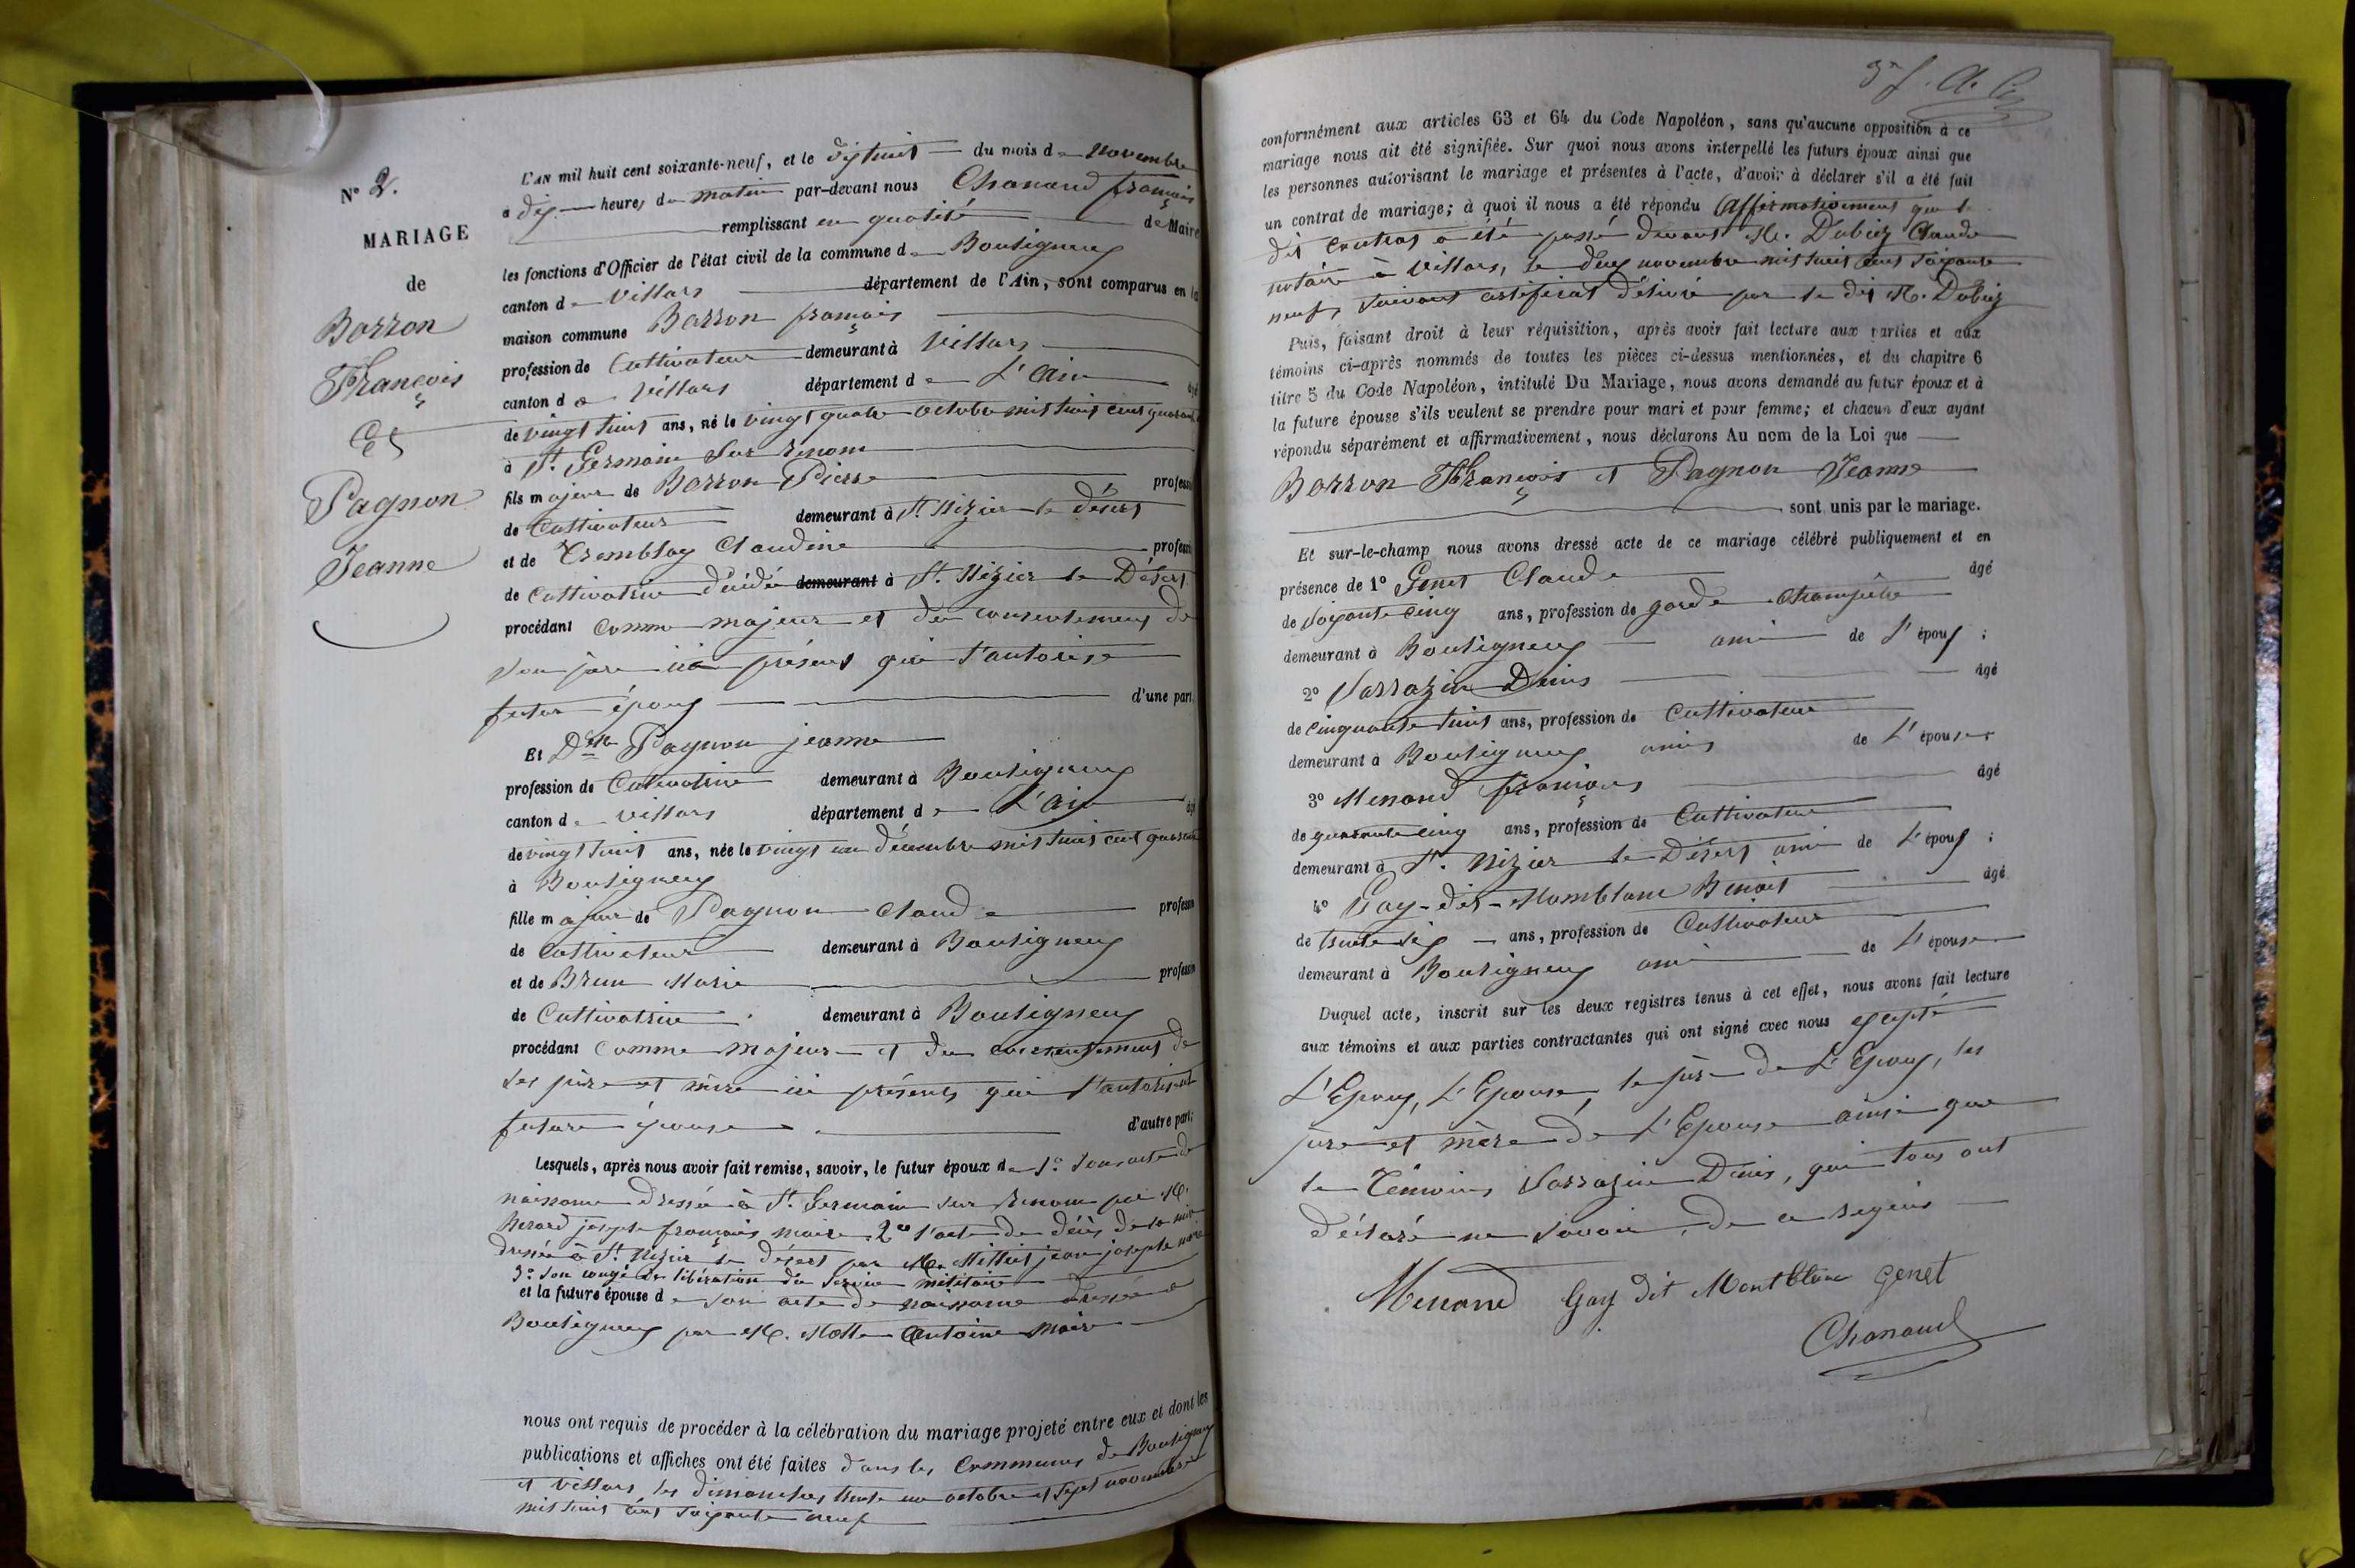 N° 2.
MARIAGE
de
Barron
François
Et
Pagnon
Jeanne
L'AN mil huit cent soixante-neuf, et le dix huit du mois de novembre
à dix heures du matin par-devant nous Chanaud françois
remplissant en qualité de Maire
les fonctions d'Officier de l'état civil de la commune de Bouligneux
canton de Villars département de l'Ain, sont comparus en la
maison commune Barron françois
profession de Cultivateur demeurant à Villars
canton de Villars département de L'ain âgé
de vingt huit ans, né le vingt quatre octobre mil huit cent quarante
à St. Germain Sur Renom
fils majeur de Barron Pierre professi
de Cultivateur demeurant à St. Nizier le désert
et de Tremblay Claudine professi
de Cultivatrice décédée demeurant à St. Nizier le Désert
procédant Comme majeur et du consentement de
Son père ici présent qui l'autorise
futur époux d'une part.
Et Delle Pagnon jeanne
profession de Cultivatrice demeurant à Bouligneux
canton de Villars département de L'ain âgé
de vingt huit ans, née le vingt un décembre mil huit cent quarante
à Bouligneux
fille majeure de Pagnon Claude profession
de Cultivateur demeurant à Bouligneux
et de Brun Marie profession
de Cultivatrice demeurant à Bouligneux
procédant Comme majeure et du consentement de
Ses père et mère ici présents qui l'autorisent
future épouse d'autre part;
Lesquels, après nous avoir fait remise, savoir, le futur époux de 1° Son acte de
naissance dressé à St. Germain sur Renom par M.
joseph françois maire 2° l'acte de décès de sa mère
dressé à St. Nizier le désert par M. Millet jean joseph maire
3° Son congé de libération du Service militaire
et la future épouse de son acte de naissance dressé à
Bouligneux par M. Antoine Maire
nous ont requis de procéder à la célébration du mariage projeté entre eux et dont les
publications et affiches ont été faites dans les Communes de Bouligneux
et Villars, les dimanches trente un octobre et sept novembre
mil huit cent soixante neuf
conformément aux articles 63 et 64 du Code Napoléon, sans qu'aucune opposition à ce
mariage nous ait été signifiée. Sur quoi nous avons interpellé les futurs époux ainsi que
les personnes autorisant le mariage et présentes à l'acte, d'avoir à déclarer s'il a été fait
un contrat de mariage; à quoi il nous a été répondu Affirmativement que le
dit contrat a été passé devant M. Dubiez Claude
notaire à Villars, le deux novembre mil huit cent soixante
neuf, suivant certificat délivré par le dit M. Dubiez
Puis, faisant droit à leur réquisition, après avoir fait lecture aux parties et aux
témoins ci-après nommés de toutes les pièces ci-dessus mentionnées, et du chapitre 6
titre 5 du Code Napoléon, intitulé Du Mariage, nous avons demandé au futur époux et à
la future épouse s'ils veulent se prendre pour mari et pour femme; et chacun d'eux ayant
répondu séparément et affirmativement, nous déclarons Au nom de la Loi que
Barron François et Pagnon Jeanne
sont unis par le mariage.
Et sur-le-champ nous avons dressé acte de ce mariage célébré publiquement et en
présence de 1° Genet Claude âgé
de Soixante cinq ans, profession de garde Champêtre
demeurant à Bouligneux ami de l'époux;
2° Sarrazin Denis âgé
de cinquante huit ans, profession de Cultivateur
demeurant à Bouligneux ami de L'épouse
3° Menand françois âgé
de quarante cinq ans, profession de Cultivateur
demeurant à St. Nizier le Désert ami de L'époux;
4° Gay-dit-Momblanc Benoit âgé
de trente six ans, profession de Cultivateur
demeurant à Bouligneux ami de L'épouse
Duquel acte, inscrit sur les deux registres tenus à cet effet, nous avons fait lecture
aux témoins et aux parties contractantes qui ont signé avec nous excepté
L'Epoux, L'Epouse, le père de L'Epoux, les
père et mère de L'Epouse ainsi que
le Témoins Sarrazin Denis, qui tous ont
déclaré ne savoir, de ce requis
Menand Gay dit Montblanc Genet
Chanaud